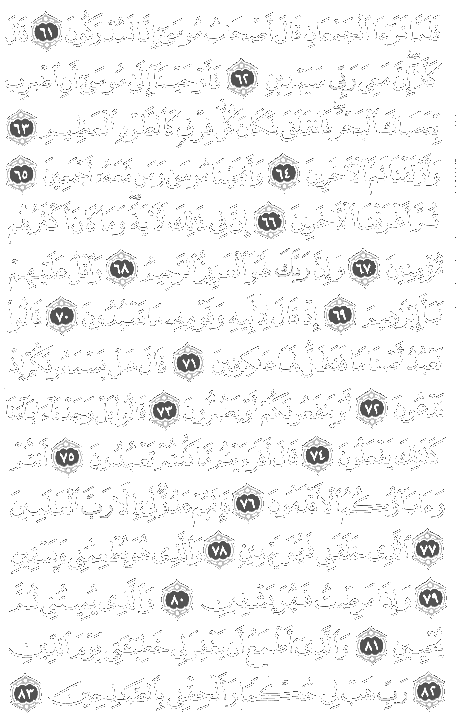 فَلَمَّا تَرَٰٓءَا ٱلْجَمْعَانِ قَالَ أَصْحَٰبُ مُوسَىٰٓ إِنَّا لَمُدْرَكُونَ ٦١ قَالَ
كَلَّآ إِنَّ مَعِىَ رَبِّى سَيَهْدِينِ ٦٢ فَأَوْحَيْنَآ إِلَىٰ مُوسَىٰٓ أَنِ ٱضْرِب
بِّعَصَاكَ ٱلْبَحْرَ فَٱنفَلَقَ فَكَانَ كُلُّ فِرْقٍ كَٱلطَّوْدِ ٱلْعَظِيمِ ٦٣
وَأَزْلَفْنَا ثَمَّ ٱلْءَاخَرِينَ ٦٤ وَأَنجَيْنَا مُوسَىٰ وَمَن مَّعَهُۥٓ أَجْمَعِينَ ٦٥
ثُمَّ أَغْرَقْنَا ٱلْءَاخَرِينَ ٦٦ إِنَّ فِى ذَٰلِكَ لَءَايَةً وَمَا كَانَ أَكْثَرُهُم
مُّؤْمِنِينَ ٦٧ وَإِنَّ رَبَّكَ لَهُوَ ٱلْعَزِيزُ ٱلرَّحِيمُ ٦٨ وَٱتْلُ عَلَيْهِمْ
نَبَأَ إِبْرَٰهِيمَ ٦٩ إِذْ قَالَ لِأَبِيهِ وَقَوْمِهِۦ مَا تَعْبُدُونَ ٧٠ قَالُوا۟
نَعْبُدُ أَصْنَامًا فَنَظَلُّ لَهَا عَٰكِفِينَ ٧١ قَالَ هَلْ يَسْمَعُونَكُمْ إِذْ
تَدْعُونَ ٧٢ أَوْ يَنفَعُونَكُمْ أَوْ يَضُرُّونَ ٧٣ قَالُوا۟ بَلْ وَجَدْنَآ ءَابَآءَنَا
كَذَٰلِكَ يَفْعَلُونَ ٧٤ قَالَ أَفَرَءَيْتُم مَّا كُنتُمْ تَعْبُدُونَ ٧٥ أَنتُمْ
وَءَابَآؤُكُمُ ٱلْأَقْدَمُونَ ٧٦ فَإِنَّهُمْ عَدُوٌّ لِّىٓ إِلَّا رَبَّ ٱلْعَٰلَمِينَ
٧٧ ٱلَّذِى خَلَقَنِى فَهُوَ يَهْدِينِ ٧٨ وَٱلَّذِى هُوَ يُطْعِمُنِى وَيَسْقِينِ
٧٩ وَإِذَا مَرِضْتُ فَهُوَ يَشْفِينِ ٨٠ وَٱلَّذِى يُمِيتُنِى ثُمَّ
يُحْيِينِ ٨١ وَٱلَّذِىٓ أَطْمَعُ أَن يَغْفِرَ لِى خَطِيٓـَٔتِى يَوْمَ ٱلدِّينِ
٨٢ رَبِّ هَبْ لِى حُكْمًا وَأَلْحِقْنِى بِٱلصَّٰلِحِينَ ٨٣